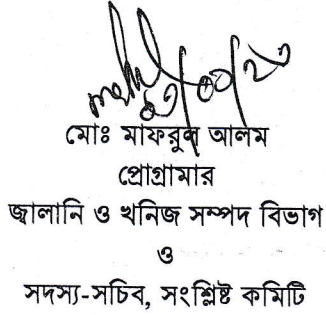 মোঃ মাফরুল আলম
প্রোগ্রামার
জ্বালানি ও খনিজ সম্পদ বিভাগ
ও
সদস্য-সচিব, সংশ্লিষ্ট কমিটি